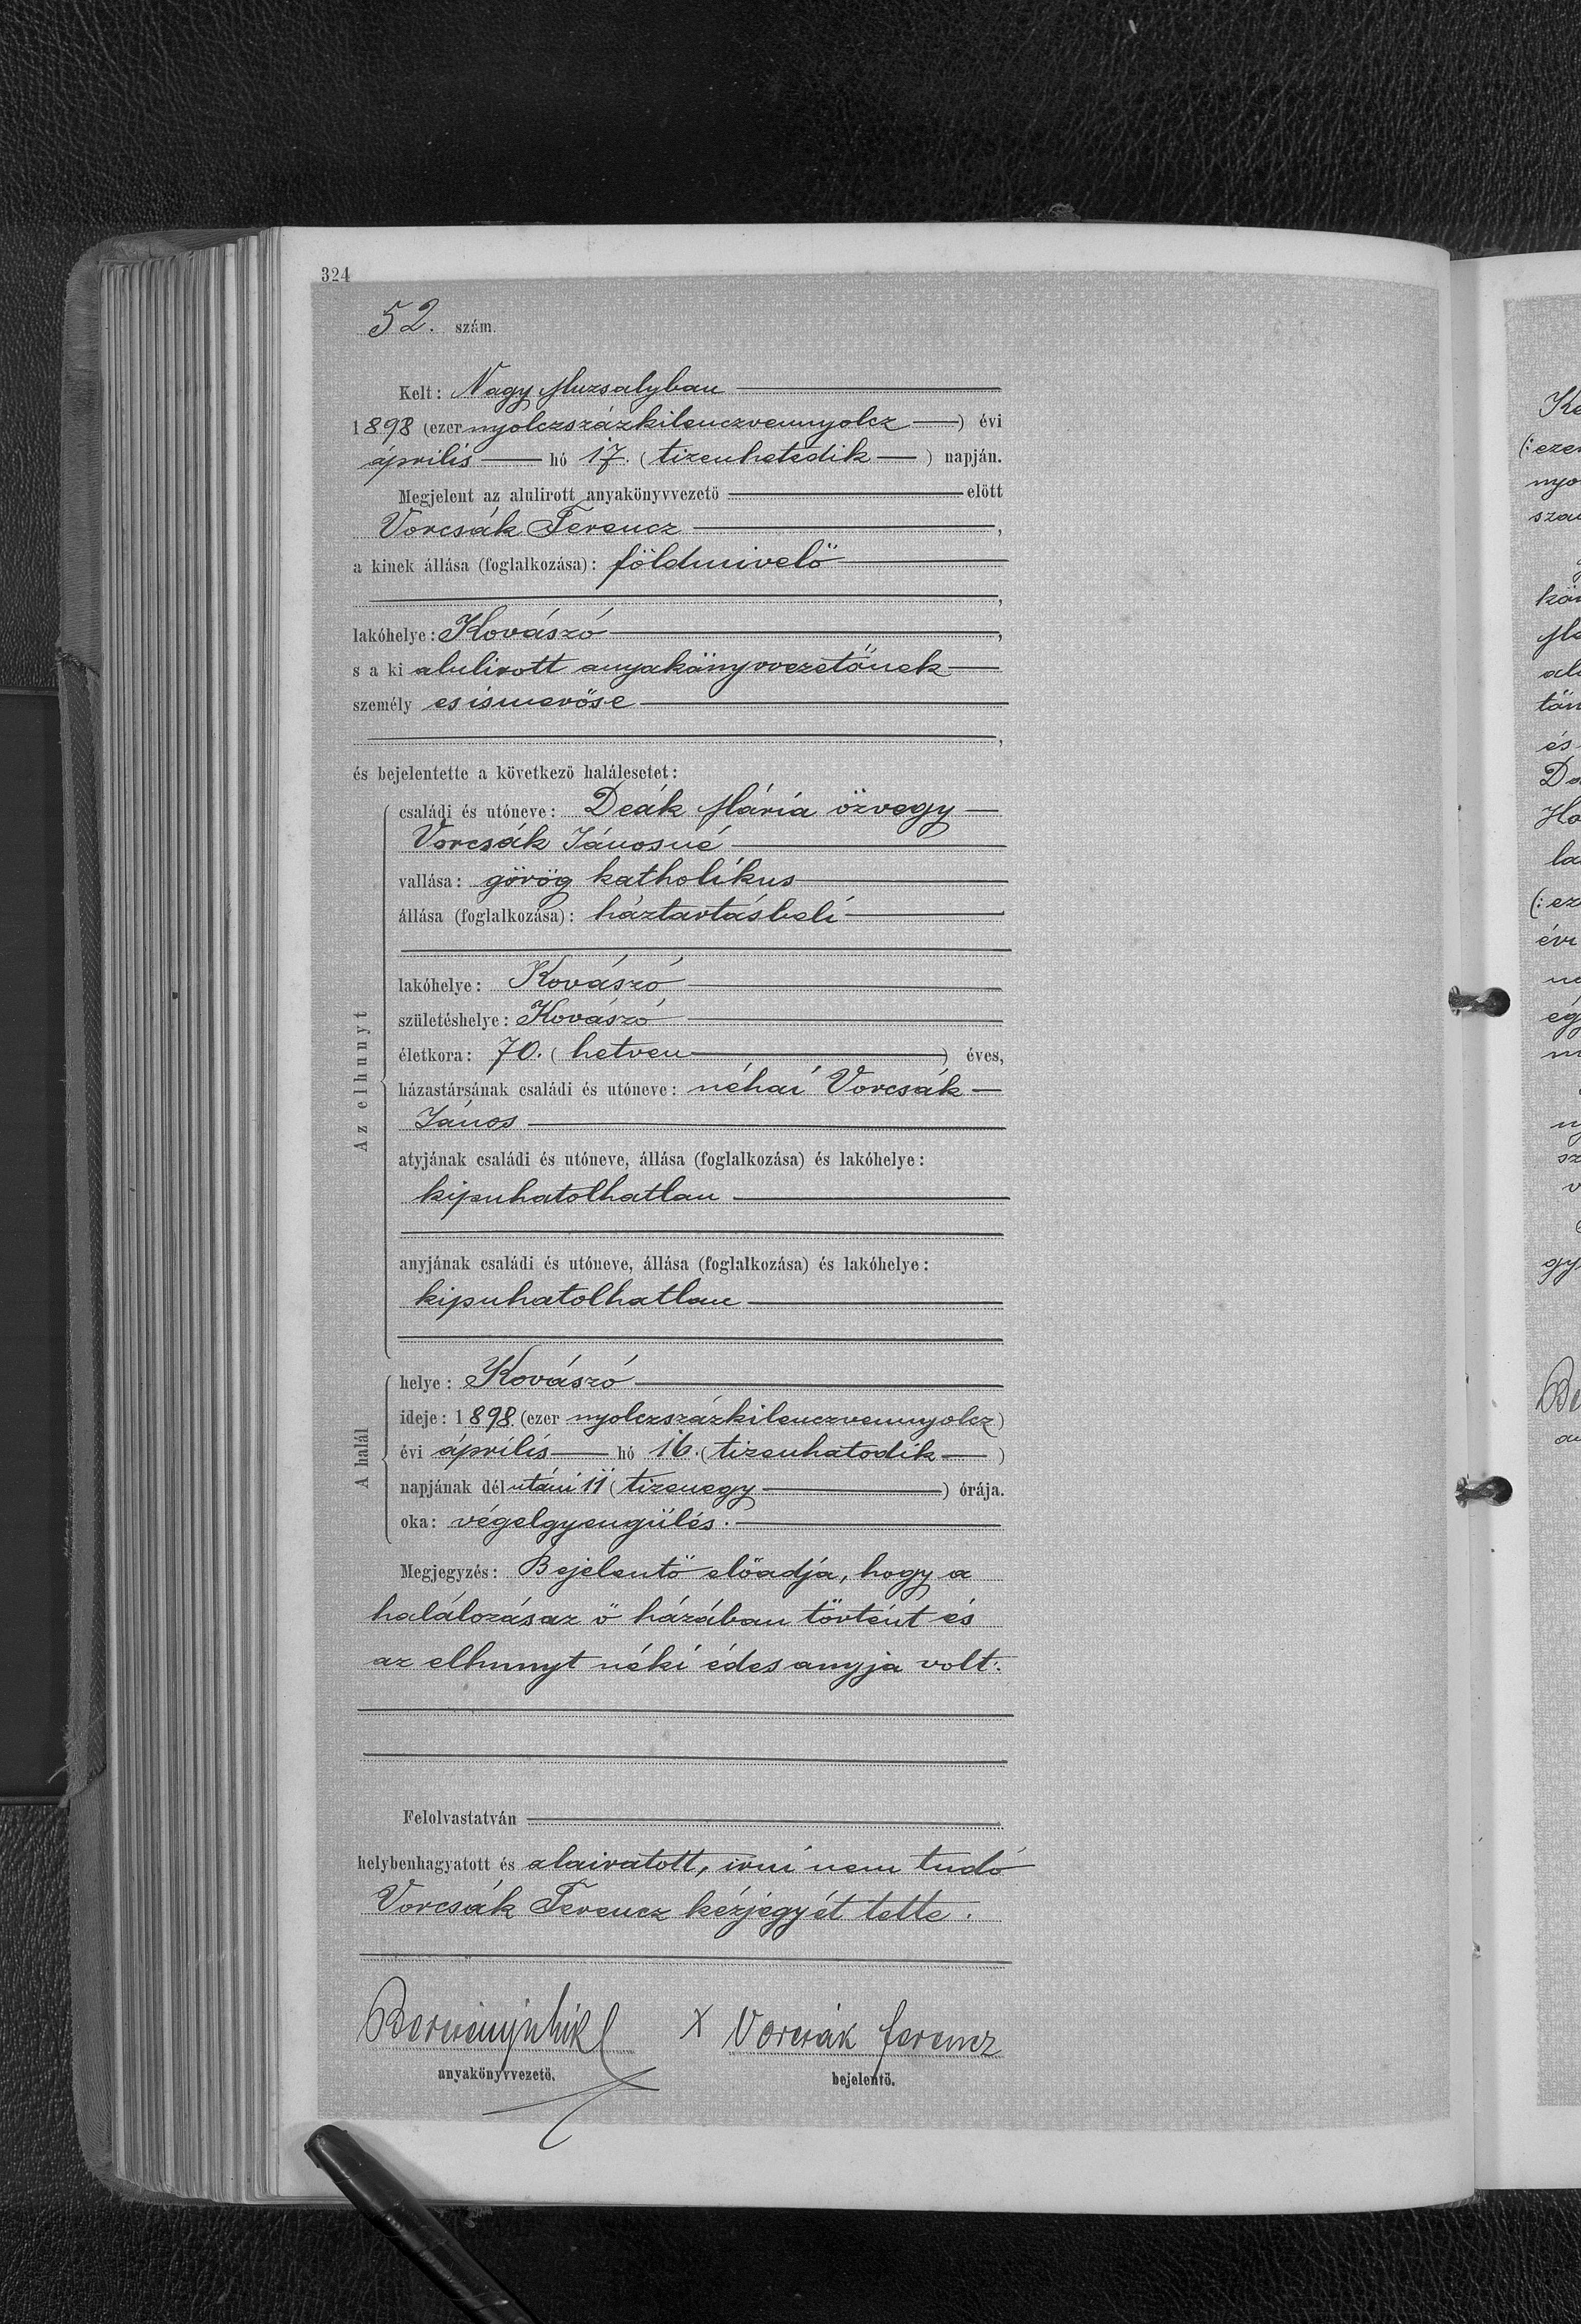 324
52. szám.
Kelt: Nagy Muzsalyban
1898 (ezer nyolczszázkilenczvennyolcz) évi
április hó 17. (tizenhetedik) napján.
Megjelent az alulirott anyakönyvvezető előtt
Vorcsák Ferencz,
a kinek állása (foglalkozása): földmivelő
,
lakóhelye: Kovászó,
s a ki alulirott anyakönyvvezetőnek
személyes ismerőse
,
és bejelentette a következő halálesetet:
Az elhunyt
családi és utóneve: Deák Mária özvegy
Vorcsák Jánosné
vallása: görög katholikus
állása (foglalkozása): háztartásbeli
lakóhelye: Kovászó
születéshelye: Kovászó
életkora: 70. (hetven) éves,
házastársának családi és utóneve: néhai Vorcsák
János
atyjának családi és utóneve, állása (foglalkozása) és lakóhelye:
kipuhatolhatlan
anyjának családi és utóneve, állása (foglalkozása) és lakóhelye:
kipuhatolhatlan
A halál
helye: Kovászó
ideje: 1898. (ezer nyolczszázkilenczvennyolcz)
évi április hó 16. (tizenhatodik)
napjának délutáni 11 (tizenegy) órája.
oka: végelgyengülés.
Megjegyzés: Bejelentő előadja, hogy a
halálozás az ő házában történt és
az elhunyt néki édes anyja volt.
Felolvastatván
helybenhagyatott és alairatott, irni nem tudó
Vorcsák Ferencz kézjegyét tette.
x Vorcsák Ferencz
anyakönyvvezető. bejelentő.